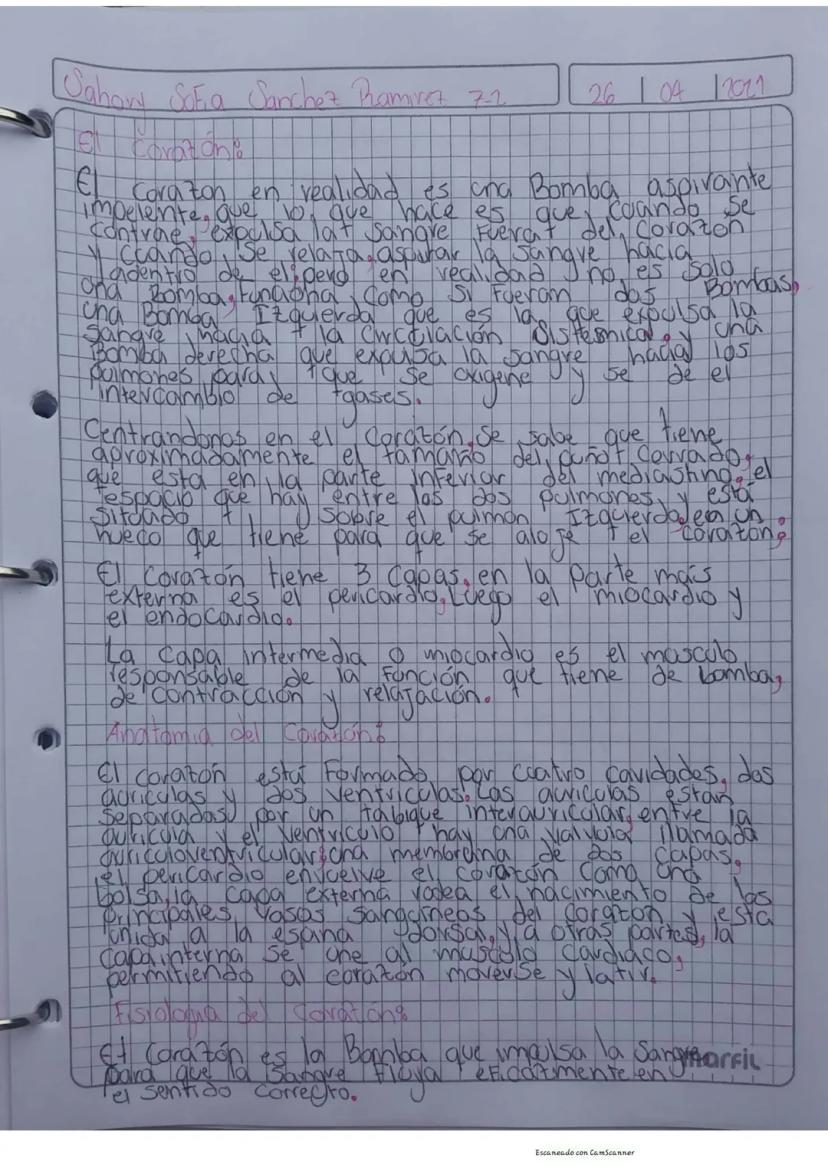 Sahary Sofia Sanchez Ramirez 7-2 26 | 04 | 2021
El Corazón:
El corazon en realidad es una Bomba aspirante
impelente, que lo que hace es que, cuando se
contrae, expulsa la sangre fuera del corazon
y cuando se relaja, aspirar la sangre hacia
adentro de el, pero en realidad no es solo
una Bomba, Funciona como si fueran dos Bombas,
una Bomba Izquierda que es la que expulsa la
sangre hacia la circulación sistemica, y una
Bomba derecha que expulsa la sangre hacia los
pulmones para que se oxigene y se de el
intercambio de gases.
Centrandonos en el Corazón, se sabe que tiene
aproximadamente el tamaño del puño cerrado,
que esta en la parte inferior del mediastino, el
espacio que hay entre los dos pulmones, y está
situado sobre el pulmon Izquierdo, en un
hueco que tiene para que se aloje el corazon.
El Corazón tiene 3 Capas, en la parte más
externa es el pericardio, Luego el miocardio y
el endocardio.
La capa intermedia o miocardio es el musculo
responsable de la función que tiene de bomba,
de contracción y relajación.
Anatomia del Corazón:
El corazón está Formado por cuatro cavidades, dos
auriculas y dos ventriculas. Las auriculas estan
separadas por un tabique interauricular, entre la
auricula y el ventriculo hay una valvula llamada
auriculoventricular, una membrana de dos capas,
el pericardio envuelve el corazón como una
bolsa, la capa externa rodea el nacimiento de los
principales vasos sanguineos del corazon y está
unida a la espina dorsal y a otras partes, la
capa interna se une al musculo cardiaco,
permitiendo al corazón moverse y latir.
Fisiologia del Corazón:
El Corazón es la Bomba que impulsa la Sangre marfil
para que la sangre fluya eficazmente en
el sentido correcto.
Escaneado con CamScanner